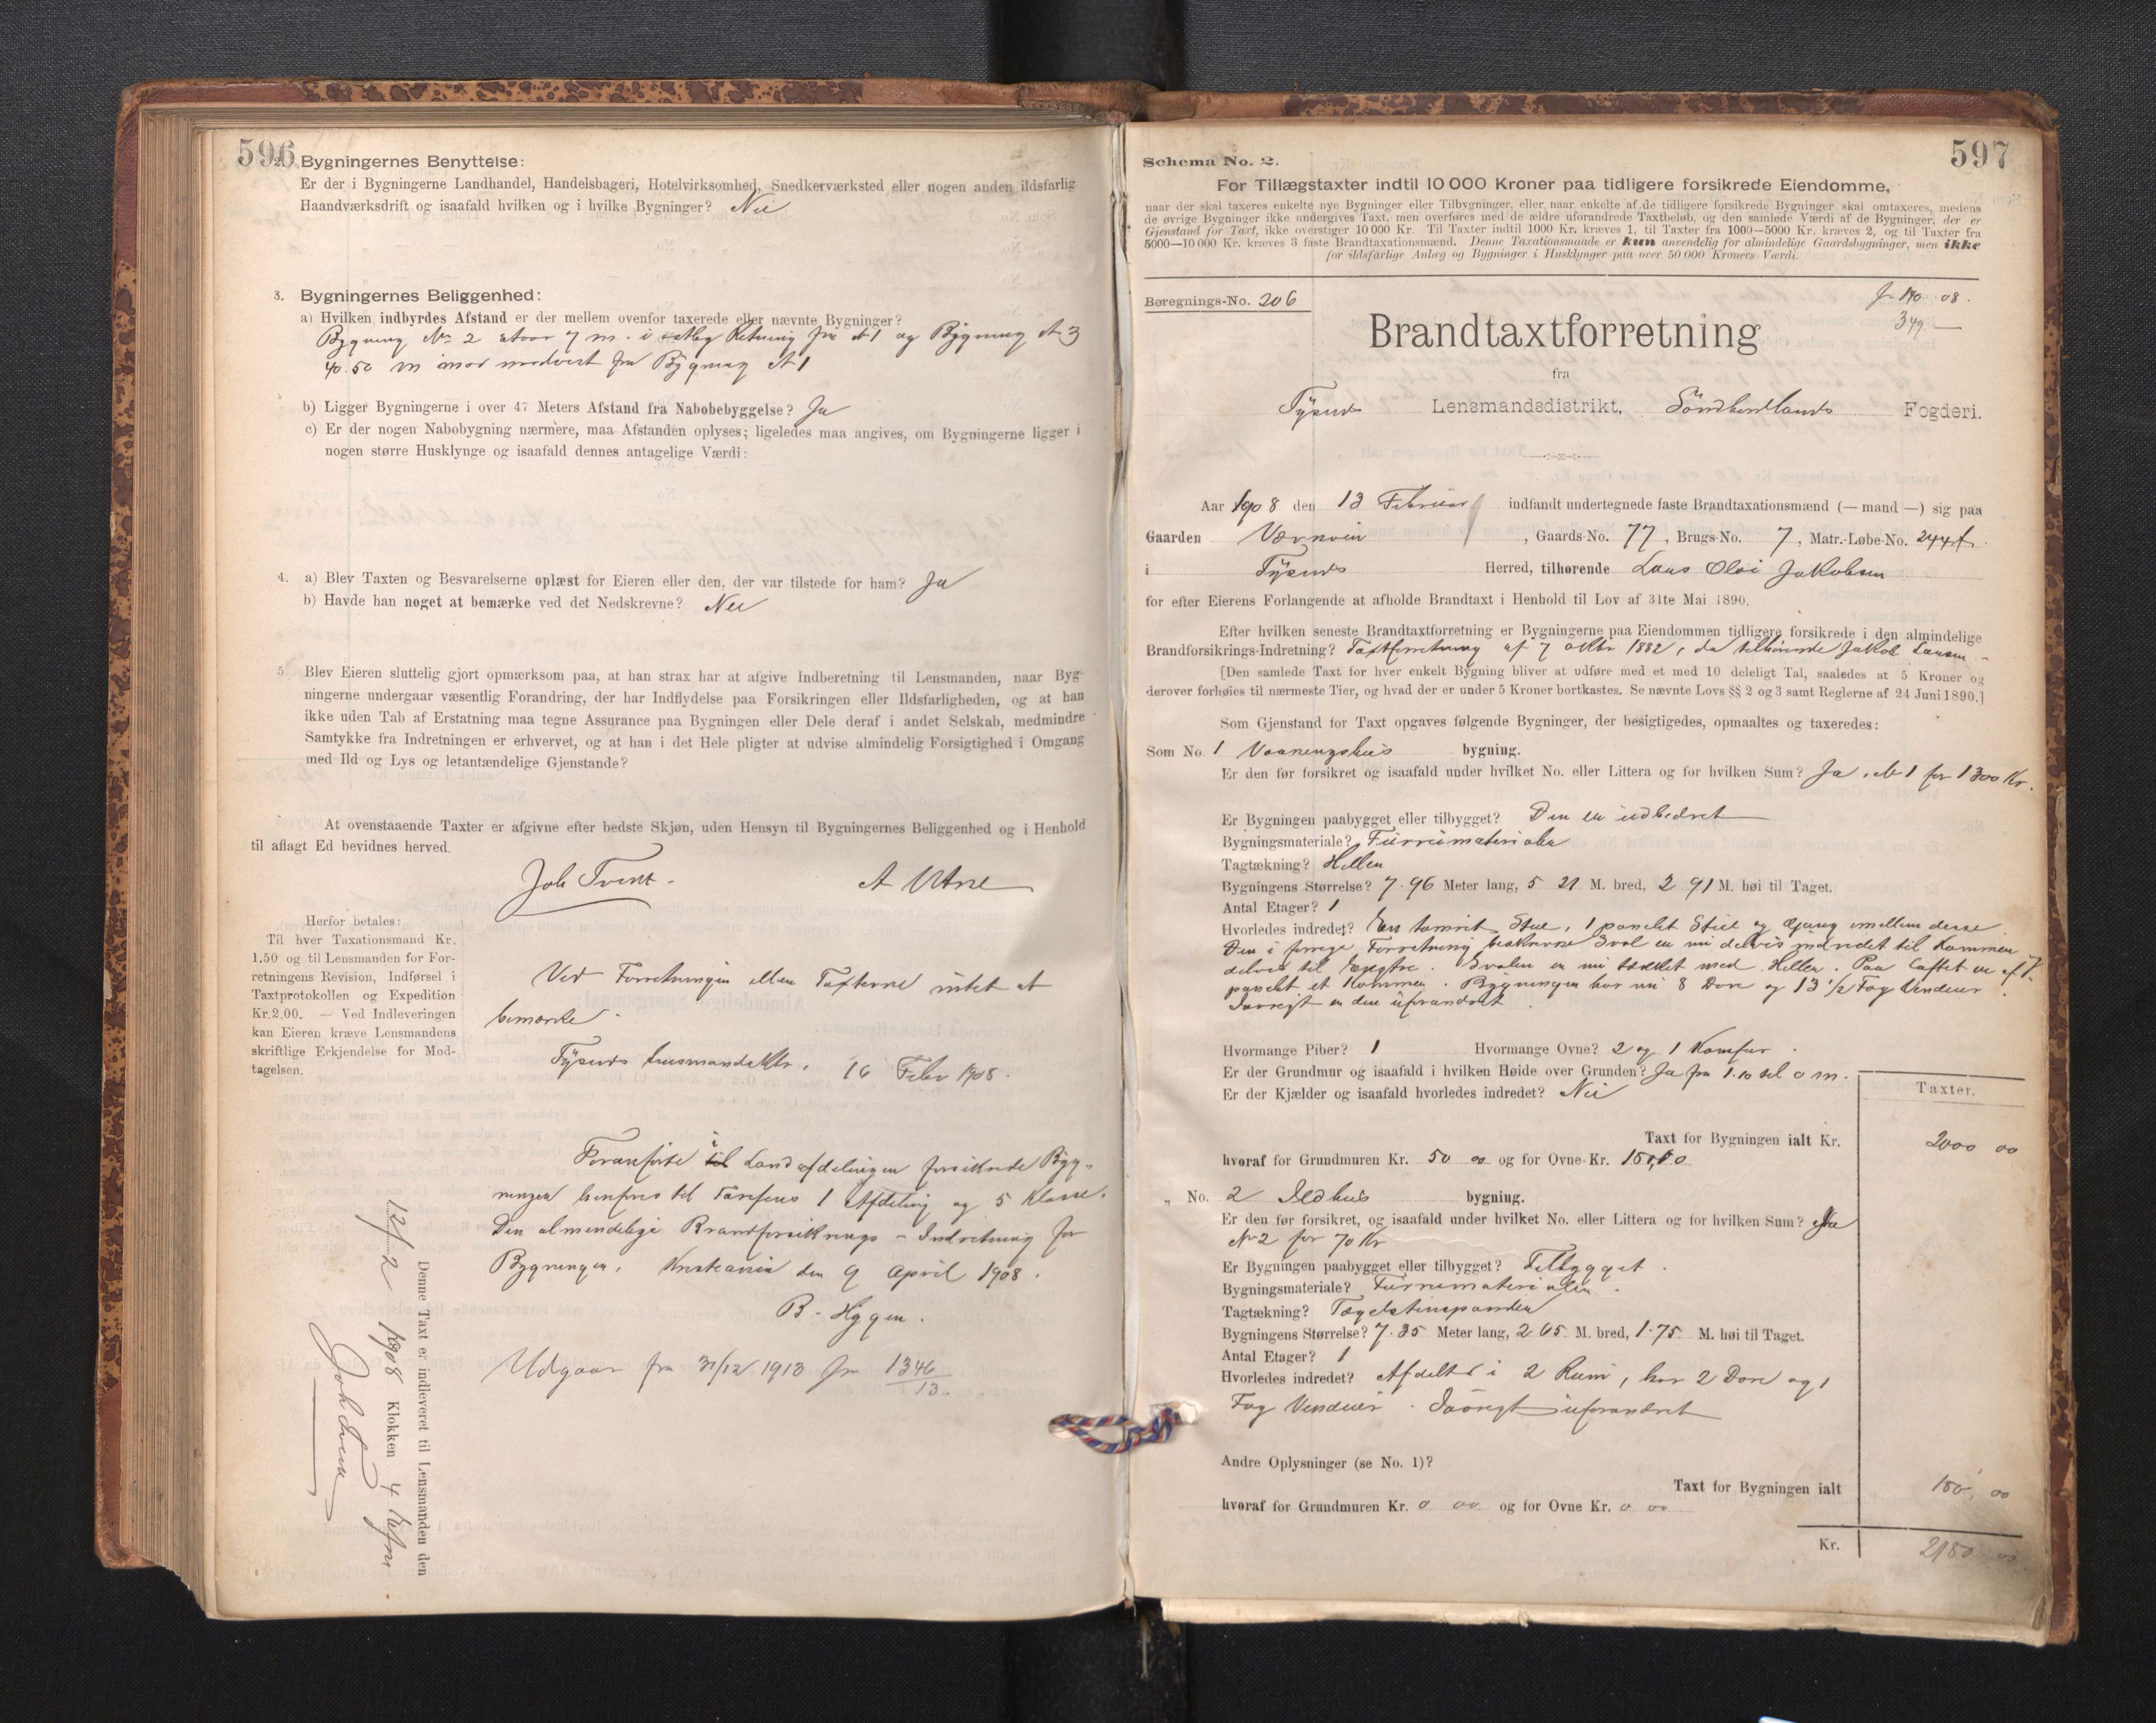 596
2. Bygningernes Benyttelse:
Er der i Bygningerne Landhandel, Handelsbageri, Hotelvirksomhed, Snedkerværksted eller nogen anden ildsfarlig
Haandværksdrift og isaafald hvilken og i hvilke Bygninger? Nei
3. Bygningernes Beliggenhed:
a) Hvilken indbyrdes Afstand er der mellem ovenfor taxerede eller nævnte Bygninger?
Bygning No 2 staar 7 m. i Retning fra No 1 og Bygning No 3
40.50 m imod nordvest fra Bygning No 1
b) Ligger Bygningerne i over 47 Meters Afstand fra Nabobebyggelse? Ja
c) Er der nogen Nabobygning nærmere, maa Afstanden oplyses; ligeledes maa angives, om Bygningerne ligger i
nogen større Husklynge og isaafald dennes antagelige Værdi:
4. a) Blev Taxten og Besvarelserne oplæst for Eieren eller den, der var tilstede for ham? Ja
b) Havde han noget at bemærke ved det Nedskrevne? Nei
5. Blev Eieren sluttelig gjort opmærksom paa, at han strax har at afgive Indberetning til Lensmanden, naar Byg-
ningerne undergaar væsentlig Forandring, der har Indflydelse paa Forsikringen eller Ildsfarligheden, og at han
ikke uden Tab af Erstatning maa tegne Assurance paa Bygningen eller Dele deraf i andet Selskab, medmindre
Samtykke fra Indretningen er erhvervet, og at han i det Hele pligter at udvise almindelig Forsigtighed i Omgang
med Ild og Lys og letantændelige Gjenstande?
At ovenstaaende Taxter er afgivne efter bedste Skjøn, uden Hensyn til Bygningernes Beliggenhed og i Henhold
til aflagt Ed bevidnes herved.
Joh Tveit. A Utne
Herfor betales:
Til hver Taxationsmand Kr.
1.50 og til Lensmanden for For-
retningens Revision, Indførsel i
Taxtprotokollen og Expedition
Kr. 2.00. — Ved Indleveringen
kan Eieren kræve Lensmandens
skriftlige Erkjendelse for Mod-
tagelsen.
Ved Forretningen eller Taxterne intet at
bemærke.
Tysnes Lensmandsktr. 16 Febr 1908.
Foranførte i Landafdelingen forsikrede Byg-
ninger henføres til Tarifens 1 Afdeling og 5 Klasse.
Den almindelige Brandforsikrings-Indretning for
Bygninger, Kristiania den 9 April 1908.
B. Hygen.
Udgaar fra 31/12 1913 Jn 1346/13.
Denne Taxt er indleveret til Lensmanden den
12/2 1908 Klokken 4 Efm
Joh Tveit
597
Schema No. 2.
For Tillægstaxter indtil 10 000 Kroner paa tidligere forsikrede Eiendomme,
naar der skal taxeres enkelte nye Bygninger eller Tilbygninger, eller, naar enkelte af de tidligere forsikrede Bygninger skal omtaxeres, medens
de øvrige Bygninger ikke undergives Taxt, men overføres med de ældre uforandrede Taxtbeløb, og den samlede Værdi af de Bygninger, der er
Gjenstand for Taxt, ikke overstiger 10 000 Kr. Til Taxter indtil 1000 Kr. kræves 1, til Taxter fra 1000—5000 Kr. kræves 2, og til Taxter fra
5000—10 000 Kr. kræves 3 faste Brandtaxationsmænd. Denne Taxationsmaade er kun anvendelig for almindelige Gaardsbygninger, men ikke
for ildsfarlige Anlæg og Bygninger i Husklynger paa over 50 000 Kroners Værdi.
Beregnings-No. 206
349.
Brandtaxtforretning
fra
Tysnes Lensmandsdistrikt, Söndhordlands Fogderi.
Aar 1908 den 13 Februar indfandt undertegnede faste Brandtaxationsmænd (— mand —) sig paa
Gaarden Vernvin, Gaards-No. 77, Brugs-No. 7, Matr.-Løbe-No. 244
i Tysnes Herred, tilhørende Lars Olai Jakobsen
for efter Eierens Forlangende at afholde Brandtaxt i Henhold til Lov af 31te Mai 1890.
Efter hvilken seneste Brandtaxtforretning er Bygningerne paa Eiendommen tidligere forsikrede i den almindelige
Brandforsikrings-Indretning? Taxtforretning af 7 oktbr 1882, da tilhørende Jakob Larsen
[Den samlede Taxt for hver enkelt Bygning bliver at udføre med et med 10 deleligt Tal, saaledes at 5 Kroner og
derover forhøies til nærmeste Tier, og hvad der er under 5 Kroner bortkastes. Se nævnte Lovs §§ 2 og 3 samt Reglerne af 24 Juni 1890.]
Som Gjenstand for Taxt opgaves følgende Bygninger, der besigtigedes, opmaaltes og taxeredes:
Som No. 1 Vaaningshus bygning.
Er den før forsikret og isaafald under hvilket No. eller Littera og for hvilken Sum? Ja, No 1 for 1300 Kr.
Er Bygningen paabygget eller tilbygget? Den er udbedret
Bygningsmateriale? Furrumaterialer
Tagtækning? Heller
Bygningens Størrelse? 7.96 Meter lang, 5 21 M. bred, 2 91 M. høi til Taget.
Antal Etager? 1
Hvorledes indredet? En tømret Stue, 1 panelet Stue og Gang imellem disse.
Den i forrige Forretning beskrevne Sval er nu delvis indredet til Kammer
delvis til . Svalen er nu tækket med Heller. Paa Loftet er af
panelet et Kammer. Bygningen har nu 8 Døre og 13 1/2 Fag Vinduer.
Iøvrigt er den uforandret.
Hvormange Piber? 1 Hvormange Ovne? 2 og 1 Komfur.
Er der Grundmur og isaafald i hvilken Høide over Grunden? Ja fra 1.10 til 0 m.
Er der Kjælder og isaafald hvorledes indredet? Nei
Taxter.
Taxt for Bygningen ialt Kr. 2000 00
hvoraf for Grundmuren Kr. 50 00 og for Ovne Kr. 150,00
„ No. 2 Ildhus bygning.
Er den før forsikret, og isaafald under hvilket No. eller Littera og for hvilken Sum? Ja
No 2 for 70 Kr
Er Bygningen paabygget eller tilbygget? Tilbygget.
Bygningsmateriale? Furrumaterialer.
Tagtækning? Tagelstenspander
Bygningens Størrelse? 7.35 Meter lang, 2 65 M. bred, 1.75 M. høi til Taget.
Antal Etager? 1
Hvorledes indredet? Afdelt i 2 Rum, har 2 Døre og 1
Fag Vinduer. Iøvrigt uforandret
Andre Oplysninger (se No. 1)?
Taxt for Bygningen ialt 180, 00
hvoraf for Grundmuren Kr. 0 00 og for Ovne Kr. 0 00
Kr. 2180 00